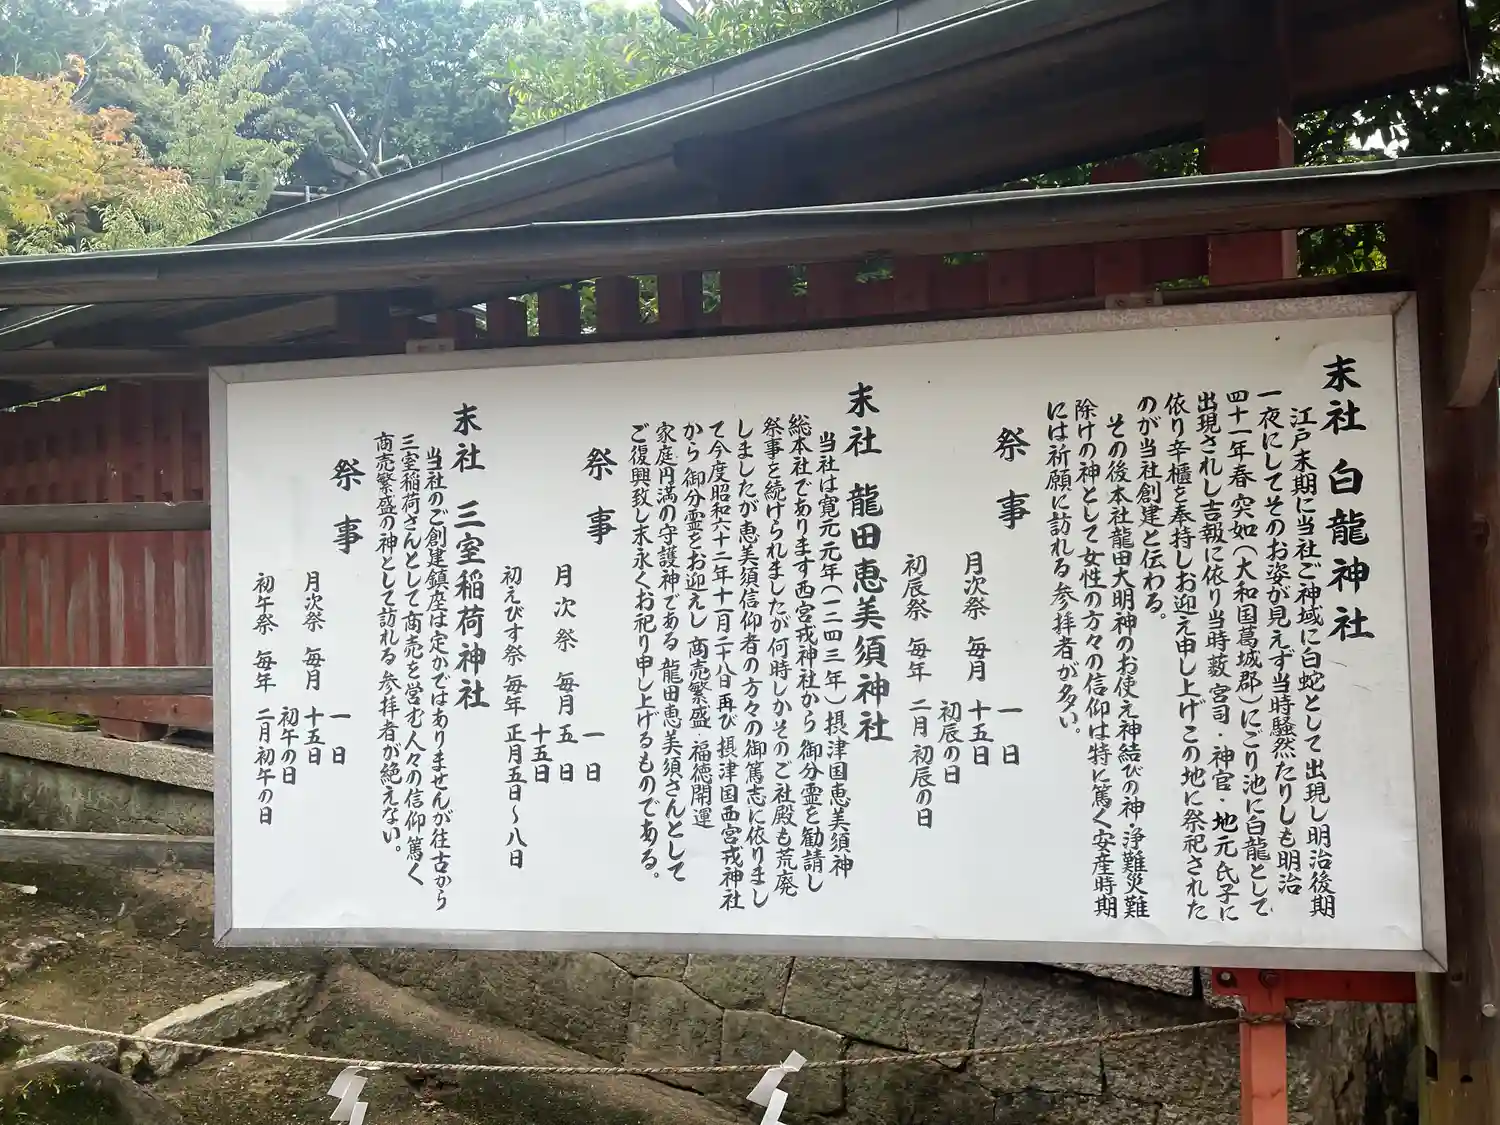 末社 白龍神社
江戸末期に当社ご神域に白蛇として出現し明治後期
一夜にしてそのお姿が見えず当時騒然たりしも明治
四十一年春突如（大和国葛城郡）にごり池に白龍として
出現されし吉報に依り当時薮宮司・神官・地元氏子に
依り辛櫃を奉持しお迎え申し上げこの地に祭祀された
のが当社創建と伝わる。
その後本社龍田大明神のお使え神結びの神・浄難災難
除けの神として女性の方々の信仰は特に篤く安産時期
には祈願に訪れる参拝者が多い。
祭事
月次祭 毎月 一日
十五日
初辰の日
初辰祭 毎年 二月初辰の日
末社 龍田恵美須神社
当社は寛元元年（一二四三年）摂津国恵美須神
総本社であります西宮戎神社から御分霊を勧請し
祭事を続けられましたが何時しかそのご社殿も荒廃
しましたが恵美須信仰者の方々の御篤志に依りまし
て今度昭和六十二年十一月二十八日再び摂津国西宮戎神社
から御分霊をお迎えし 商売繁盛・福徳開運
家庭円満の守護神である 龍田恵美須さんとして
ご復興致し末永くお祀り申し上げるものである。
祭事
月次祭 毎月 一日
五日
十五日
初えびす祭 毎年 正月五日〜八日
末社 三室稲荷神社
当社のご創建鎮座は定かではありませんが往古から
三室稲荷さんとして商売を営む人々の信仰篤く
商売繁盛の神として訪れる参拝者が絶えない。
祭事
月次祭 毎月 一日
十五日
初午の日
初午祭 毎年 二月初午の日